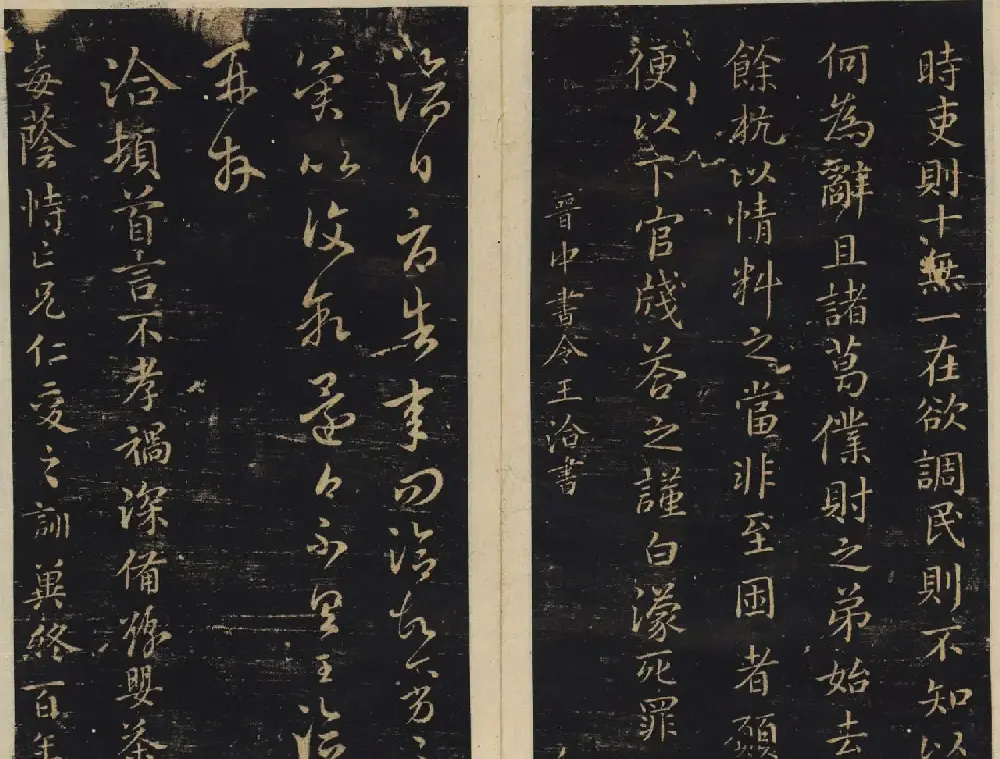 時吏則十無一在欲調民則不知以
何為辭且諸葛僕財之弟始去
餘杭以情料之當非至困者願
便以下官牋答之謹白濛死罪
晋中書令王洽書
洽白告承問洽故
冀以復還白不具王洽
再拜
洽頓首言不孝禍深備豫嬰荼
毒蔭恃亡兄仁愛之訓冀終百年